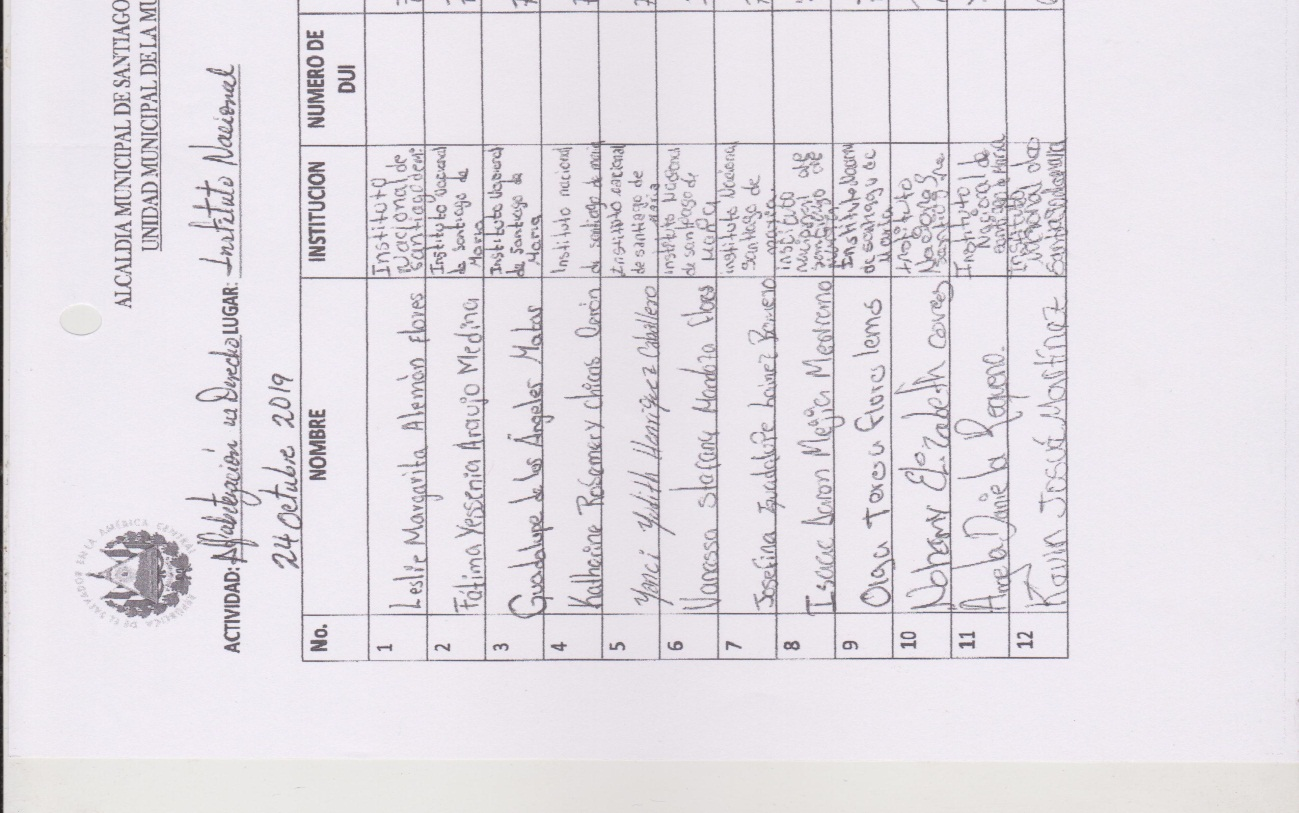 ALCALDIA MUNICIPAL DE SANTIAGO
UNIDAD MUNICIPAL DE LA
REPUBLICA DE EL SALVADOR EN LA AMÉRICA CENTRAL
ACTIVIDAD: Alfabetización en Derecho LUGAR: Instituto Nacional
24 Octubre 2019
No. NOMBRE INSTITUCION NUMERO DE
DUI
1 Leslie Margarita Alemán Flores Instituto
Nacional de
Santiago de
2 Fátima Yessenia Araujo Medina Instituto Nacional
de Santiago de
Maria
3 Guadalupe de los Ángeles Matas Instituto Nacional
de Santiago de
Maria
4 Katherine Rosemery Chicas Instituto nacional
de santiago de maria
5 Yanci Yudith Henriquez Caballero Instituto nacional
de santiago de
Maria
6 Vanessa Stefany Mendoza Flores instituto Nacional
de santiago de
Maria
7 Josefina Guadalupe Laínez Romero instituto Nacional
Santiago de
maria
8 Isaac Aaron Mejía Instituto
Nacional de
Santiago de
9 Olga Teresa Flores lemus Instituto
de santiago de
Maria
10 Nohemy Elizabeth Instituto
Nacional
11 Daniela Requeno. Instituto
Nacional de
12 Kevin Josué Martínez Instituto